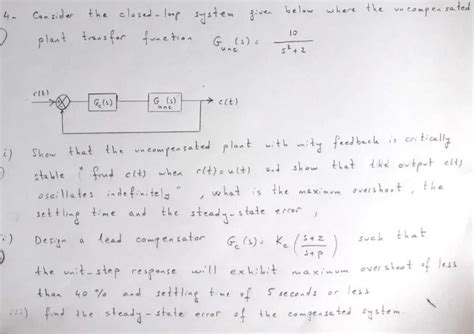 4- Consider the closed-loop system given below where the uncompensated
plant transfer function G_unc(s) = 10 / (s²+2)
r(t) G_c(s) G_unc(s) c(t)
i) Show that the uncompensated plant with unity feedback is critically
stable "find c(t) when r(t)=u(t) and show that the output c(t)
oscillates indefinitely", what is the maximum overshoot, the
settling time and the steady-state error,
ii) Design a lead compensator G_c(s) = K_c ((s+z)/(s+p)) such that
the unit-step response will exhibit maximum overshoot of less
than 40 % and settling time of 5 seconds or less
iii) find the steady-state error of the compensated system.